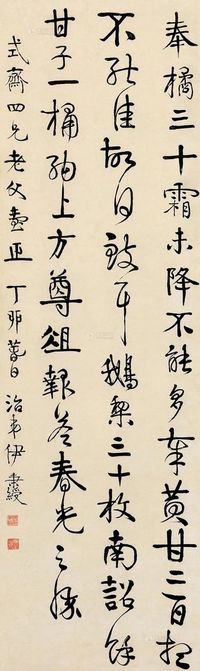 奉橘三十霜未降不能多奉黃甘二百想
不能佳故致耳鵝梨三十枚南詔餘
甘子一桶上方尊俎報答春光之
式齋四兄老父臺正 丁卯 治弟伊秉綬